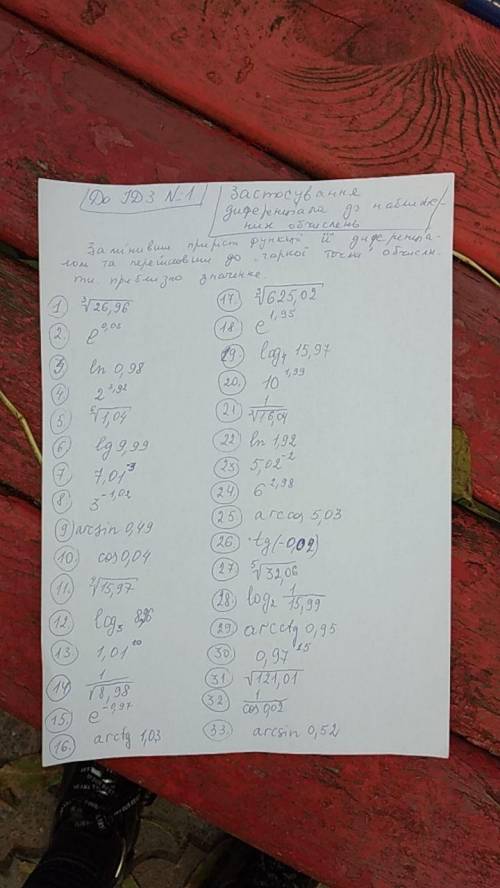 До ІДЗ №1
Застосування
диференціала до наближе-
них обчислень
Замінивши приріст функції її диференціа-
лом та перейшовши до "гарної" точки, обчисли-
ти приблизно значення.
1. ∛26,96
2. e^0,05
3. ln 0,98
4.
5. ⁵√1,04
6. lg 9,99
7. 7,01^3
8. 3^-1,02
9 arcsin 0,49
10. cos 0,04
11. ∜15,97
12. log₃
13. 1,01^10
14. 1/√8,98
15. e^-0,97
16. arctg 1,03
17. 625,02
18. e^1,95
19. log₄ 15,97
20. 10^1,99
21. 1/√16,04
22 ln 1,92
23. 5,02^-2
24. 6^2,98
25. arccos 5,03
26. tg(-0,02)
27. ⁵√32,06
28. log₂ 1/15,99
29 arcctg 0,95
30. 0,97^25
31. √121,01
32. 1/cos 0,02
33. arcsin 0,52